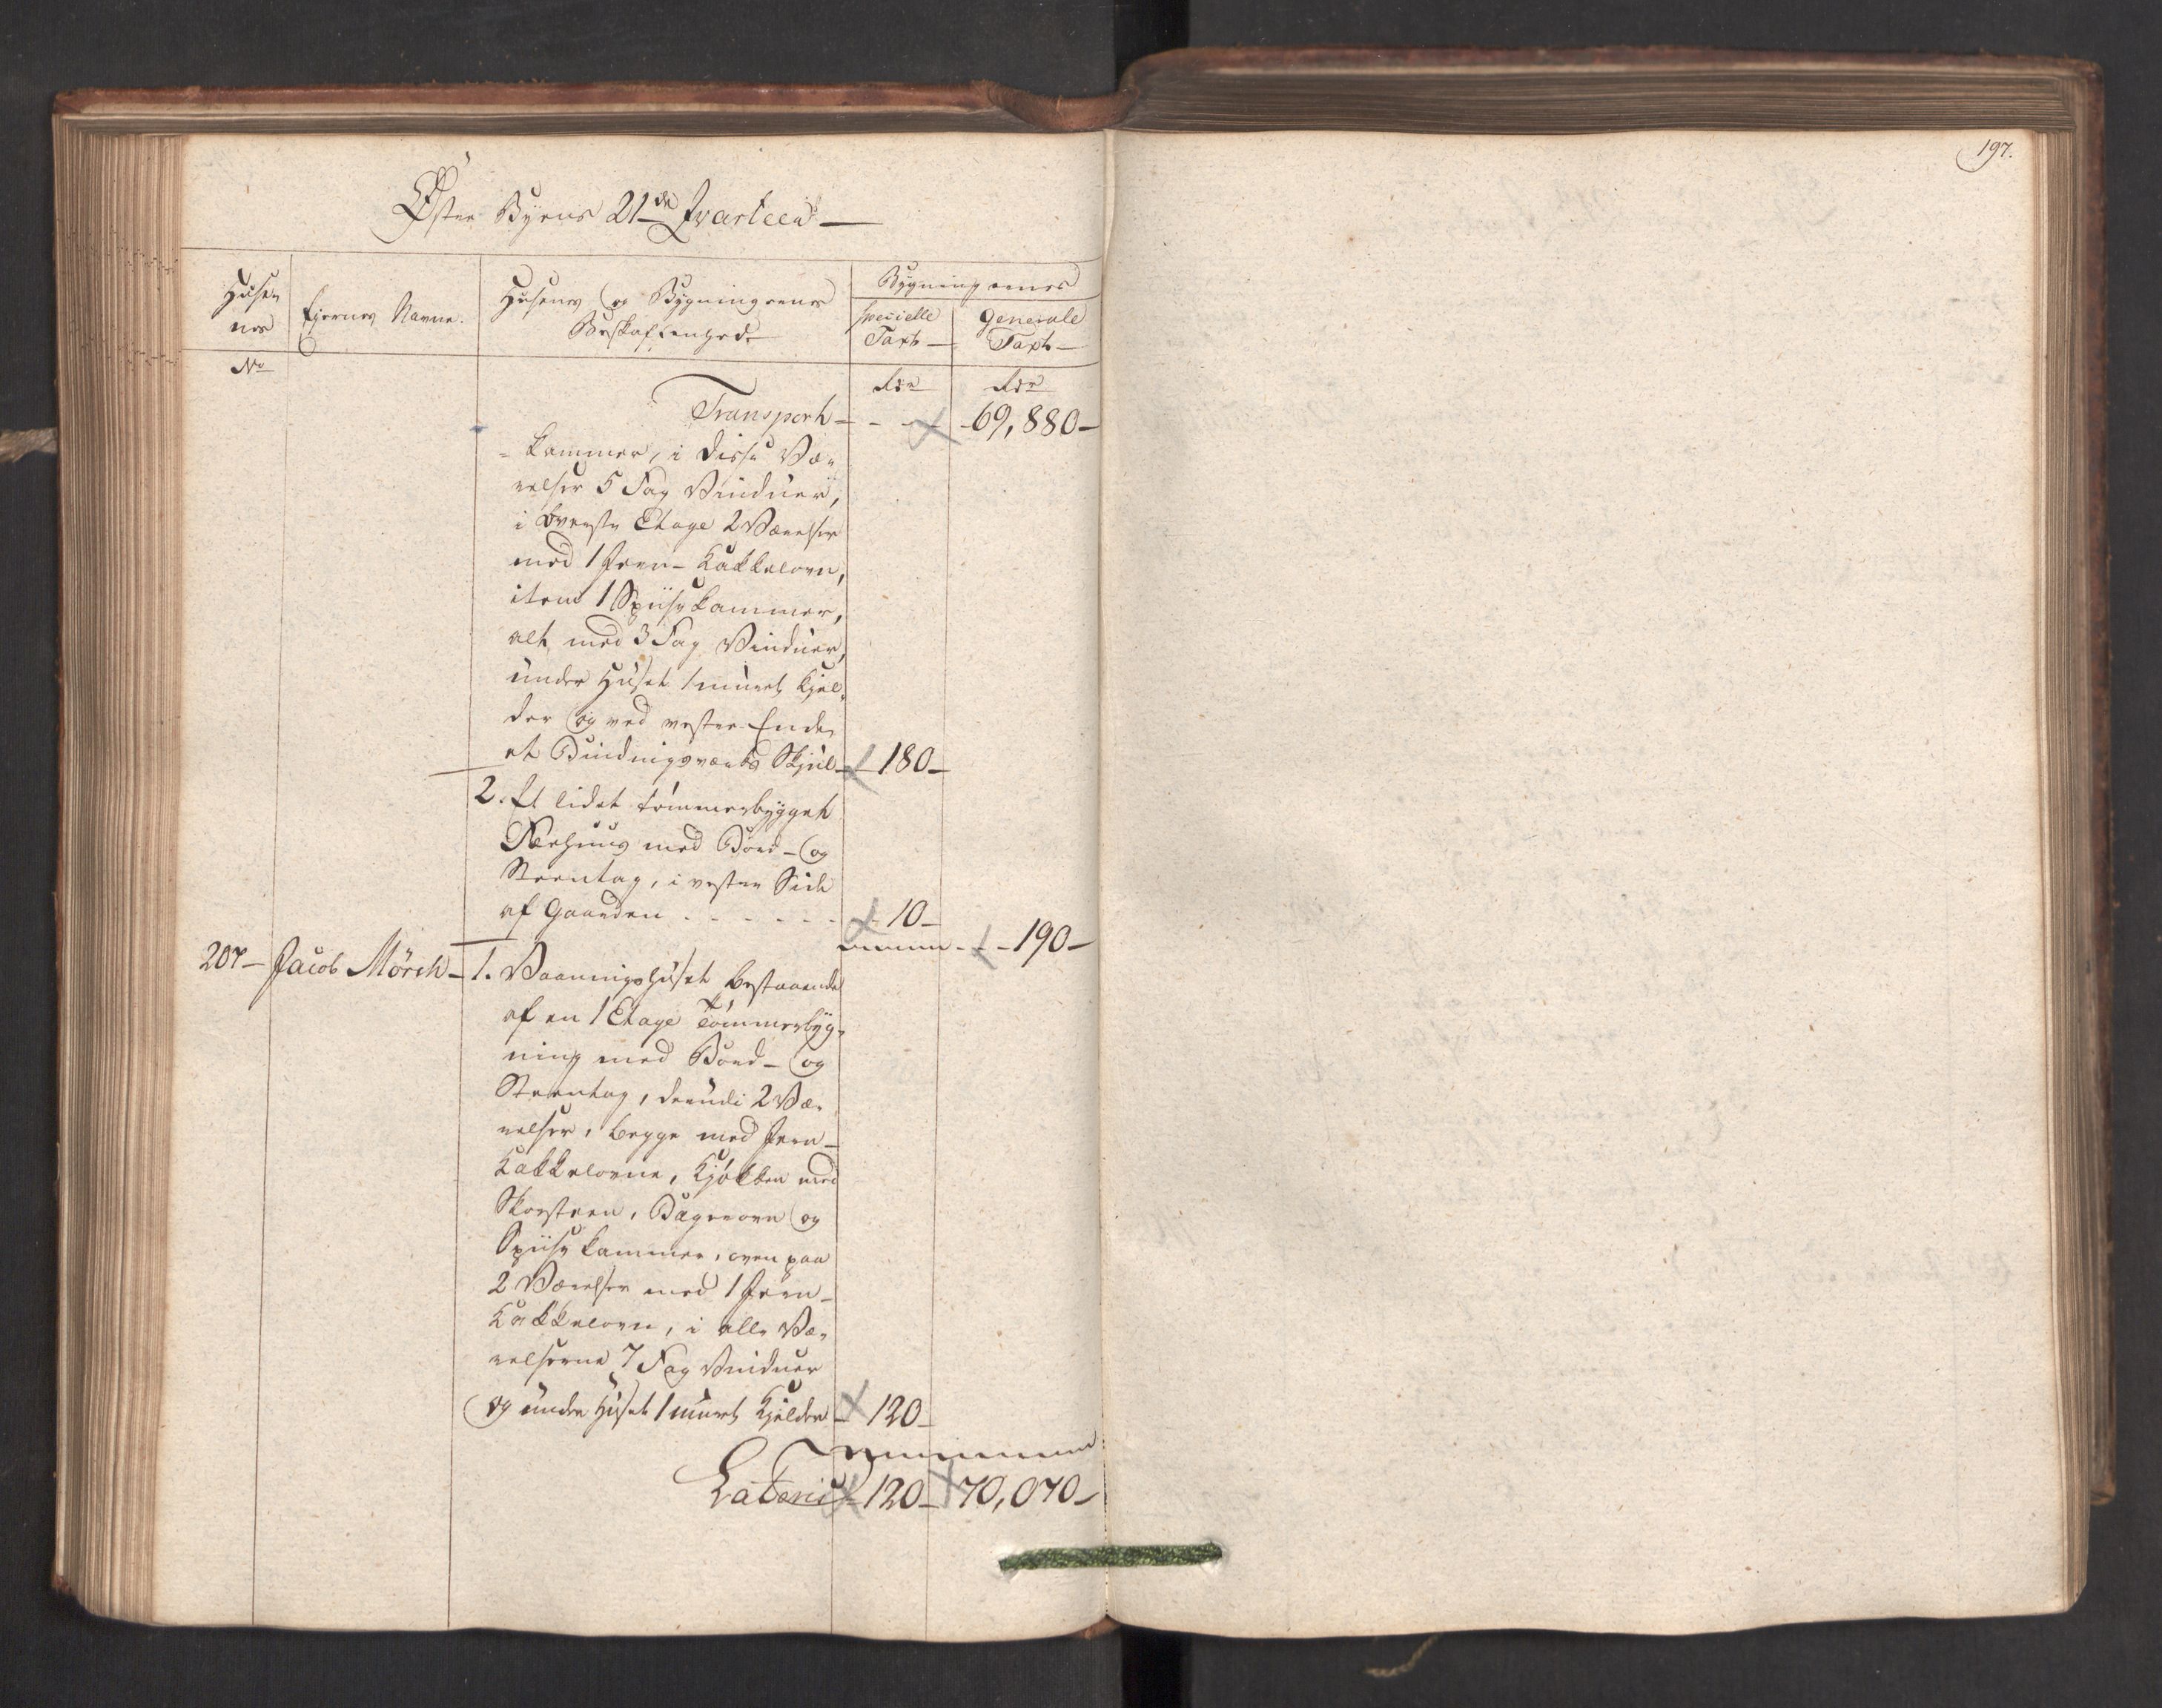 197.
Øster Byens 21de Qvarteer
Husenes
Ejernes Navne.
Husenes og Bygningernes
Beskaffenhed
Bygningernes
specielle
Taxt
Generale
Taxt
No
Rdr
Rdr
Transport - - - 69,880
kammer, i disse Væ-
relser 5 Fag Vinduer,
i øverste Etage 2 Værelser
med 1 Jern-Kakkelovn,
item 1 Spiisekammer,
alt med 3 Fag Vinduer,
under Huset 1 muret Kjel-
der og ved vestre Ende
et Bindingsværks Skjul 180
2. Et lidet tømmerbygget
Fæehuus med Bord- og
Steentag, i vester Side
af Gaarden . . . . . . 10
190
207 - Jacob Mörch - 1. Vaaningshuset bestaaende
af en 1 Etage Tømmerbyg-
ning med Bord- og
Steentag, derudi 2 Væ-
relser, begge med Jern-
Kakkelovne, Kjøkken med
Skorsteen, Bagerovn og
Spiisekammer, oven paa
2 Værelser med 1 Jern-
Kakkelovn, i alle Væ-
relserne 7 Fag Vinduer
og under Huset 1 muret Kjelder 120
Lateris 120 - 70,070